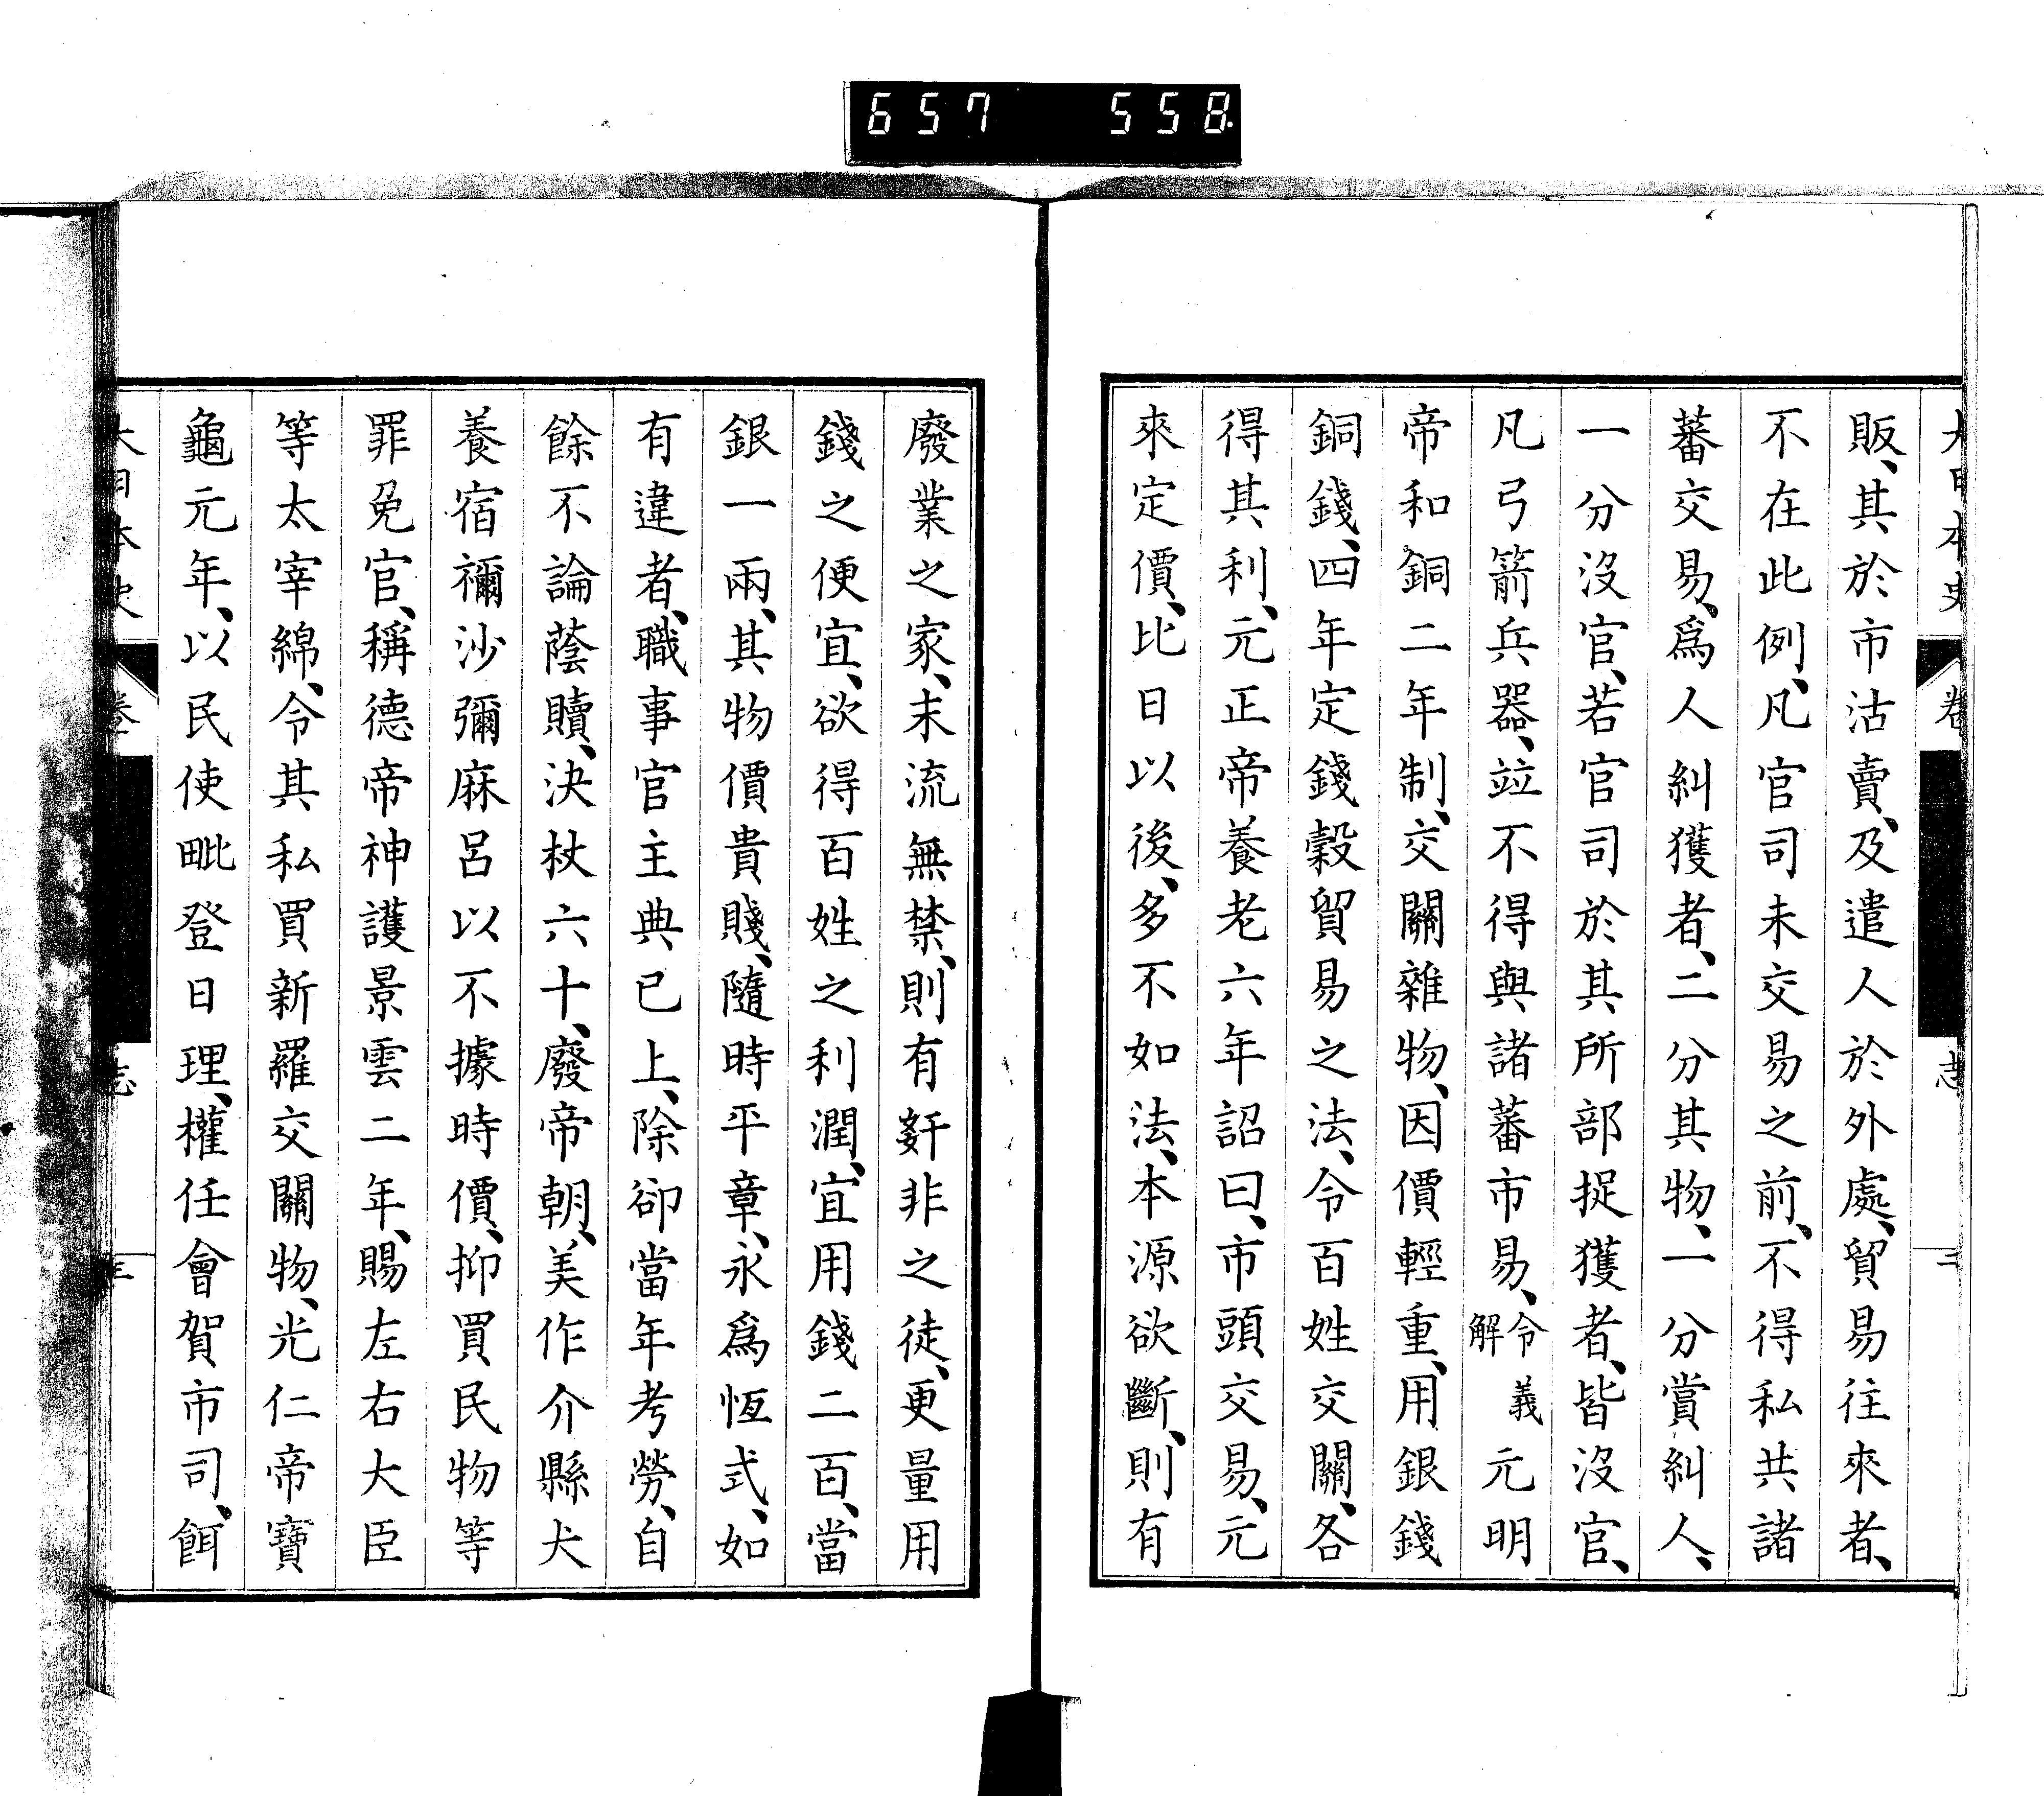 657 558
販、其於市沽賣、及遣人於外處、貿易往來者、
不在此例、凡官司未交易之前、不得私共諸
蕃交易、爲人糾獲者、二分其物、一分賞糾人、
一分沒官、若官司於其所部捉獲者、皆沒官、
凡弓箭兵器、竝不得與諸蕃市易、令義解元明
帝和銅二年制、交關雜物、因價輕重、用銀錢
銅錢、四年定錢穀貿易之法、令百姓交關、各
得其利、元正帝養老六年詔曰、市頭交易、元
來定價、比日以後、多不如法、本源欲斷、則有
廢業之家、末流無禁、則有姧非之徒、更量用
錢之便宜、欲得百姓之利潤、宜用錢二百、當
銀一兩、其物價貴賤、隨時平章、永爲恆式、如
有違者、職事官主典已上、除卻當年考勞、自
餘不論蔭贖、決杖六十、廢帝朝、美作介縣犬
養宿禰沙彌麻呂以不據時價、抑買民物等
罪免官、稱德帝神護景雲二年、賜左右大臣
等太宰綿、令其私買新羅交關物、光仁帝寶
龜元年、以民使毗登日理、權任會賀市司、餌
大日本史 卷 志